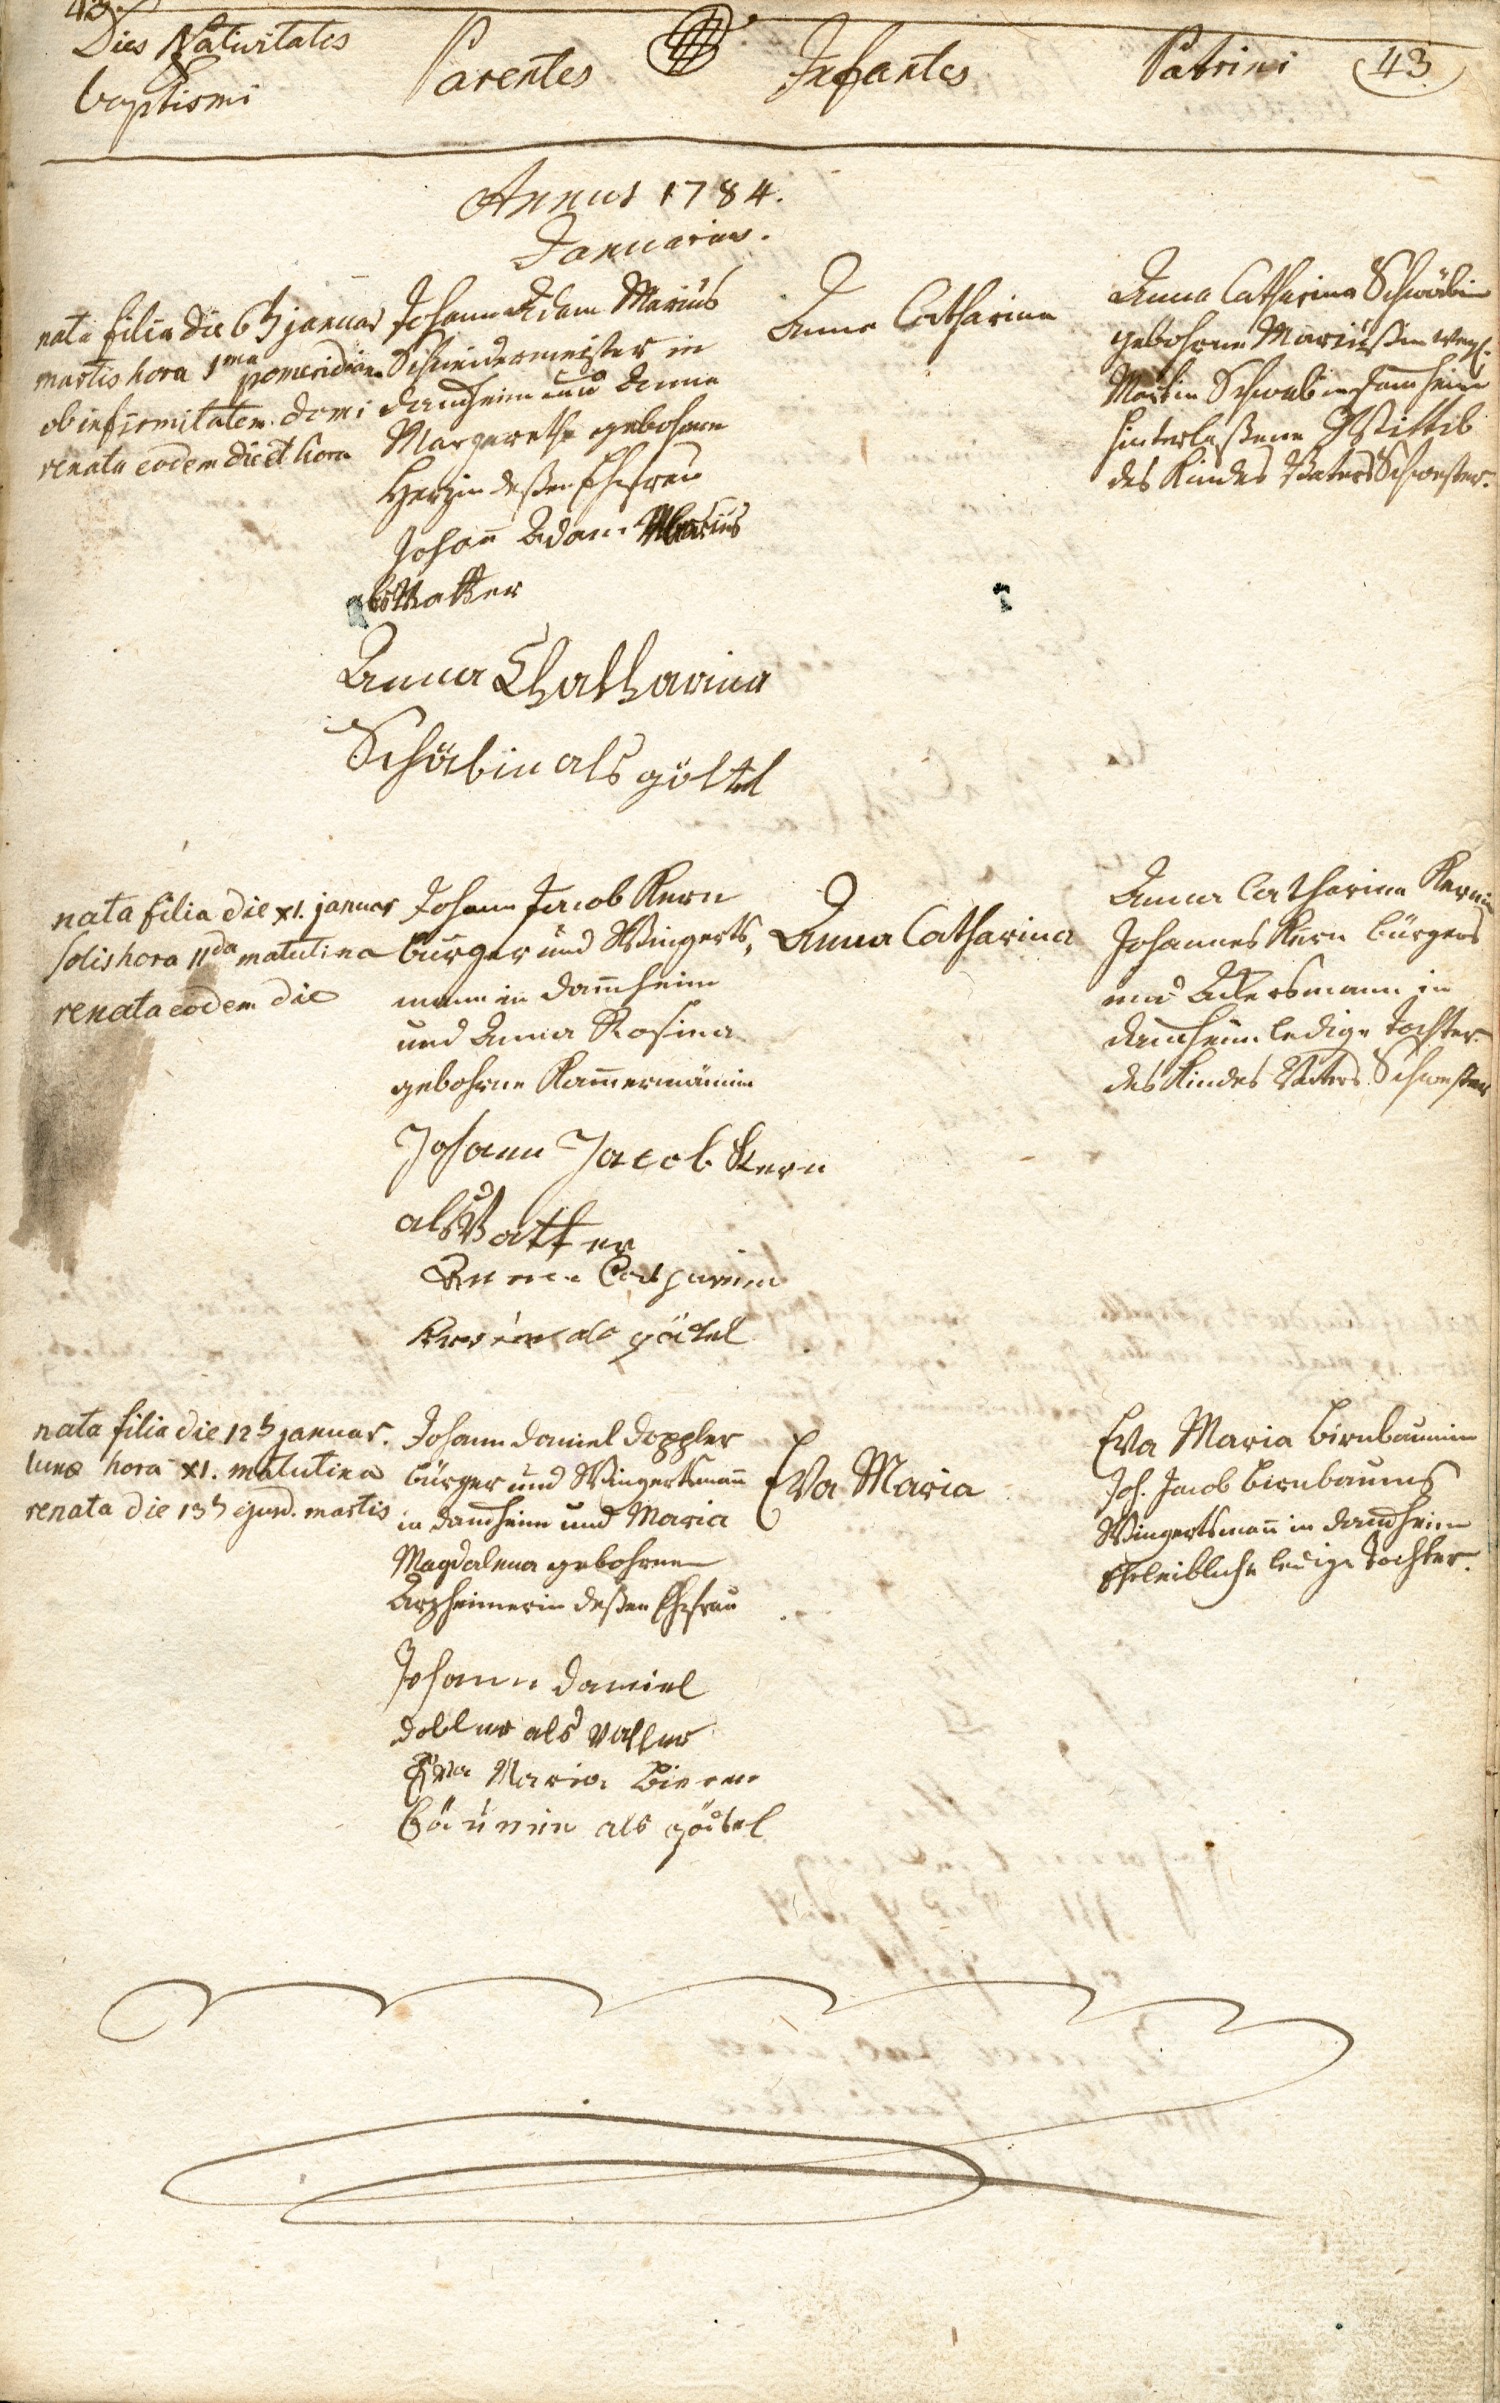 43.
Dies Nativitatis
&
baptismi
Parentes
Infantes
Patrini
43
Annus 1784.
Januarius.
nata filia die 6t januar
martis hora 1ma pomeridiana
ob infirmitatem domi
renata eodem die et hora
Johann Adam Marius
Schneidermeister in
Dam̄heim und Anna
Margaretha gebohrne
Herzin deßen Ehefrau
Johan̄ Adam Marius
als Vatter
Anna Chatharina
Schäbin als göttel
Anna Catharina
Anna Catharina Schwäbin
gebohrne Mariußin weyl.
Martin Schwab in Dam̄heim
hinterlaßene Wittib
des Kindes Vaters Schwester.
nata filia die XI. januar
solis hora 11da matutina
renata eodem die
Johann Jacob Kern
bürger und Wingerts,
mann in Dam̄heim
und Anna Rosina
gebohrne Kam̄ermännin
Johann Jacob Kern
als Vatter
Anna Catharina
Kernin als göttel
Anna Catharina
Anna Catharina Kernin
Johannes Kern bürgers
und Ackersmann in
Dam̄heim ledige Tochter
des Kindes Vaters Schwester
nata filia die 12t januar.
lunæ hora XI. matutina
renata die 13t ejusd. martis
Johann Daniel Doppler
bürger und Wingertsman̄
in Dam̄heim und Maria
Magdalena gebohrnen
Arzheimerin deßen Ehefrau
Johann Daniel
Dobler als Vatter
Eva Maria Bieren
bäumin als göttel
Eva Maria
Eva Maria Birnbaumin
Joh. Jacob Birnbaums
Wingertsman̄ in Dam̄heim
Eheleibliche ledige Tochter.